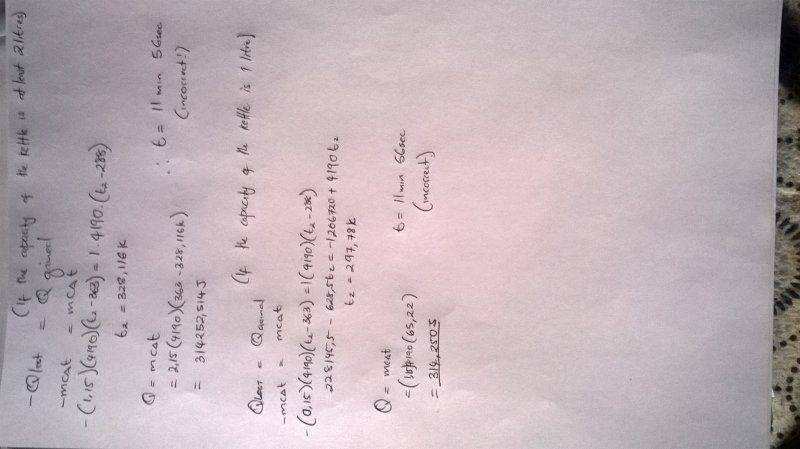 (If the capacity of the kettle is at least 2 litres)
- Qlost = Q gained
-mcΔt = mcΔt
- (1,15)(4190)(t₂-363) = 1.4190.(t₂-288)
t₂ = 328,116k
Q = mcΔt
= 2,15(4190)(363-328,116k) ∴ t = 11min 56sec
= 314252,514J (incorrect!)
(If the capacity of the kettle is 1 litre)
QLost = Qgained
-mcΔt = mcΔt
- (0,15)(4190)(t₂-363) = 1(4190)(t₂-288)
228145,5 - 628,5t₂ = -1206720 + 4190t₂
t₂ = 297,78k
Q = mcΔt
4190)(65,22) t = 11min 56sec
= 314,250J (incorrect)